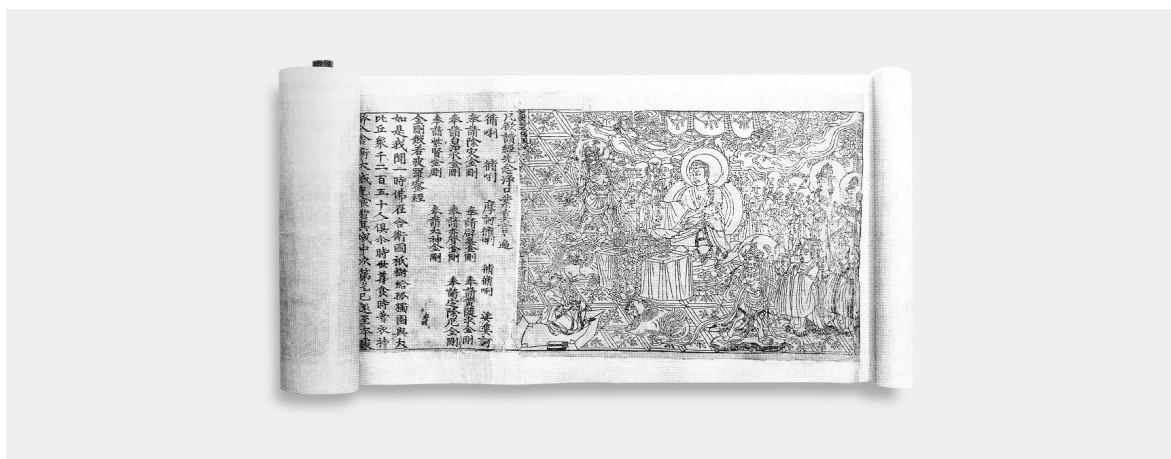 凡欲讀經先念淨口業真言一遍
脩唎 脩唎 摩訶脩唎 脩脩唎 娑婆訶
奉請除灾金剛 奉請辟毒金剛 奉請黃隨求金剛
奉請白淨水金剛 奉請赤聲金剛 奉請定除厄金剛
奉請紫賢金剛 奉請大神金剛
金剛般若波羅蜜經
如是我聞一時佛在舍衛國祇樹給孤獨園與大
比丘衆千二百五十人俱尒時世尊食時著衣持
入舍衛大城乞食於其城中次第乞已還至本處